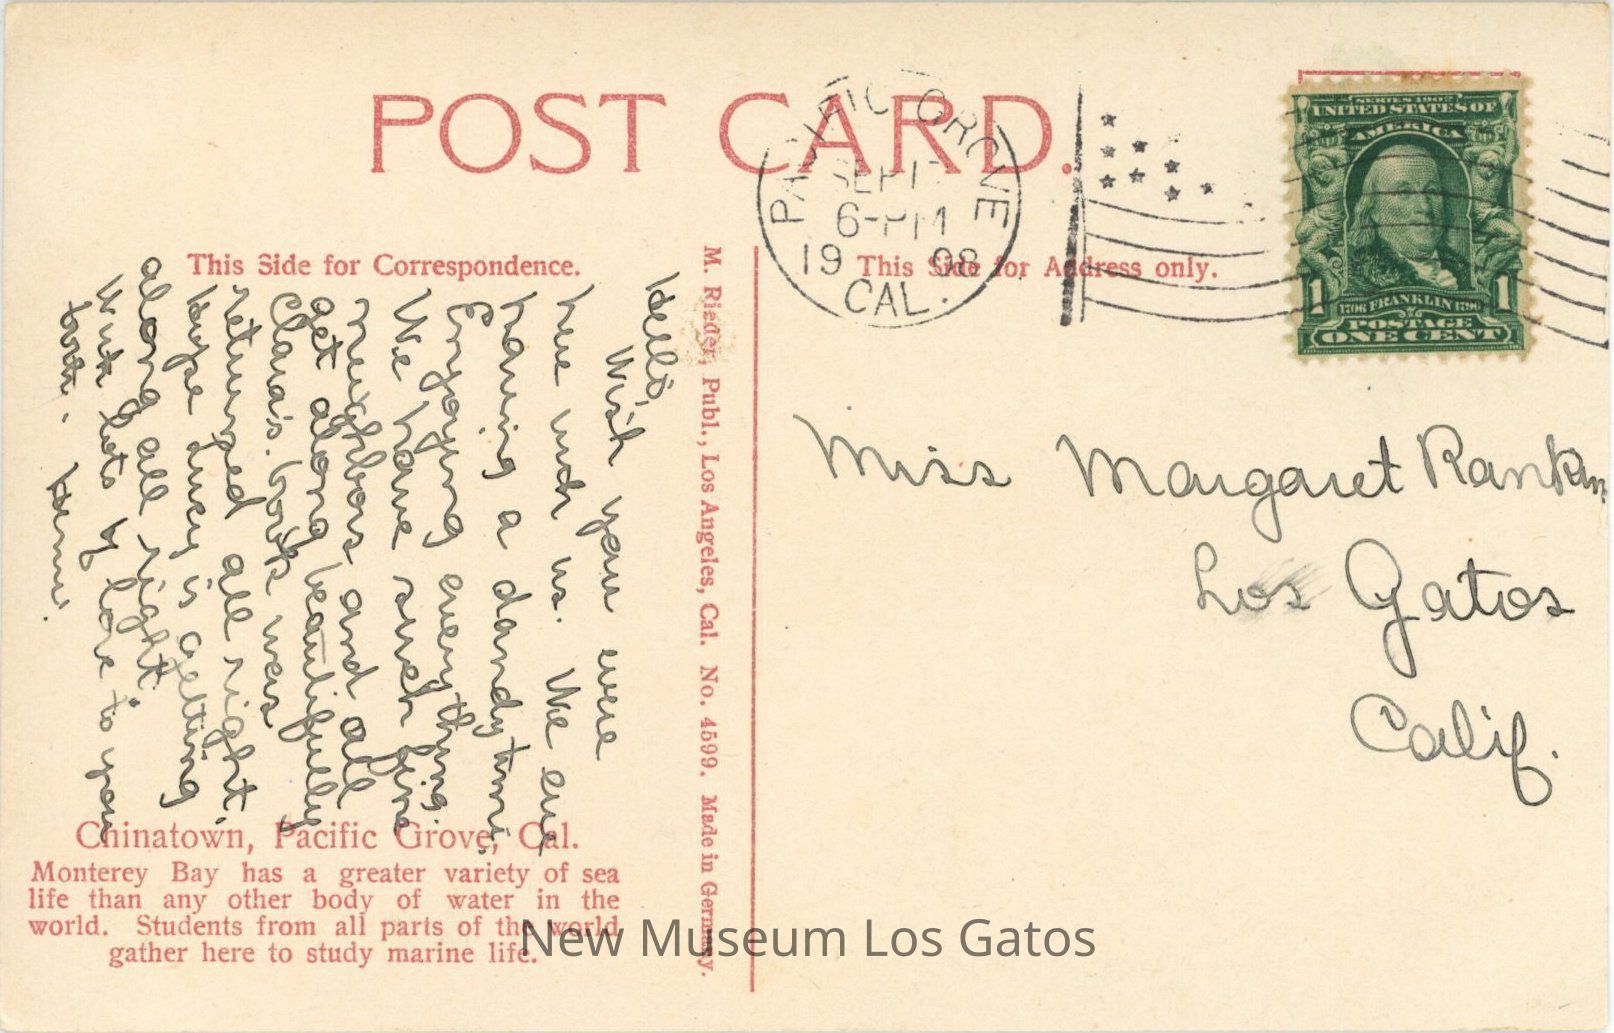 POST CARD.
PACIFIC GROVE
SEP 1
6-PM
1908
CAL.
SERIES 1902
UNITED STATES OF
AMERICA
1706 FRANKLIN 1790
1 1
POSTAGE
ONE CENT
This Side for Correspondence.
This Side for Address only.
Hello,
Wish you were
here with us. We are
having a dandy time,
Enjoying everything.
We have such fine
neighbors and all
get along beautifully
Clara's books was
returned all right.
hope Lucy is getting
along all right.
With lots of love to you
both.
M. Rieder, Publ., Los Angeles, Cal. No. 4599. Made in Germany.
Miss Margaret Rankin
Los Gatos
Calif.
Chinatown, Pacific Grove, Cal.
Monterey Bay has a greater variety of sea
life than any other body of water in the
world. Students from all parts of the world
gather here to study marine life.
New Museum Los Gatos